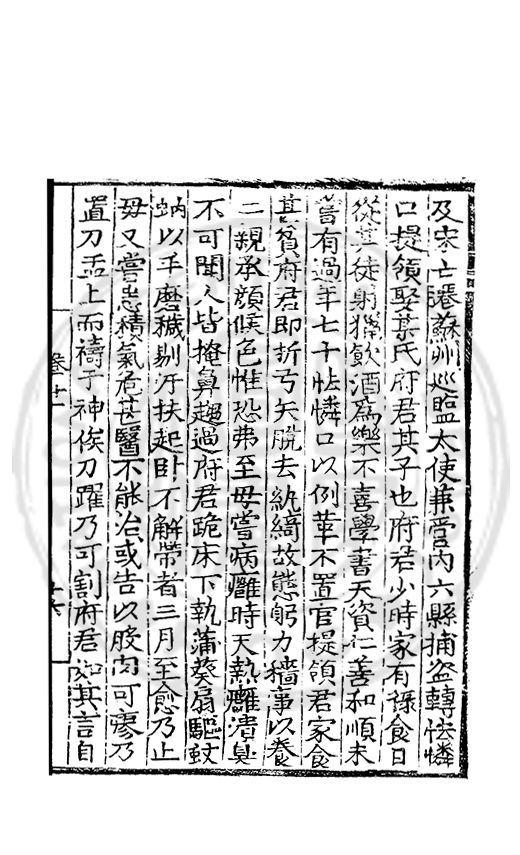 及宋亡遷蘇州巡監太使兼管内六縣捕盜轉怯憐
口提領娶某氏府君其子也府君少時家有祿食日
從其徒射獵飲酒為樂不喜學書天資仁善和順未
嘗有過年七十怯憐口以例革不置官提領君家食
甚貧府君即折弓矢脫去紈綺故態躬力穡事以養
二親承顏候色惟恐弗至母嘗病癰時天執癰潰臭
不可聞人皆掩鼻趨過府君跪床下執蒲葵扇驅蚊
蚋以手磨穢剔汙扶起卧不解帶者三月至愈乃止
母又嘗患積氣危甚醫不能治或告以股肉可瘳乃
置刀盂上而禱于神俟刀躍乃可割府君如其言自
卷十一
十六